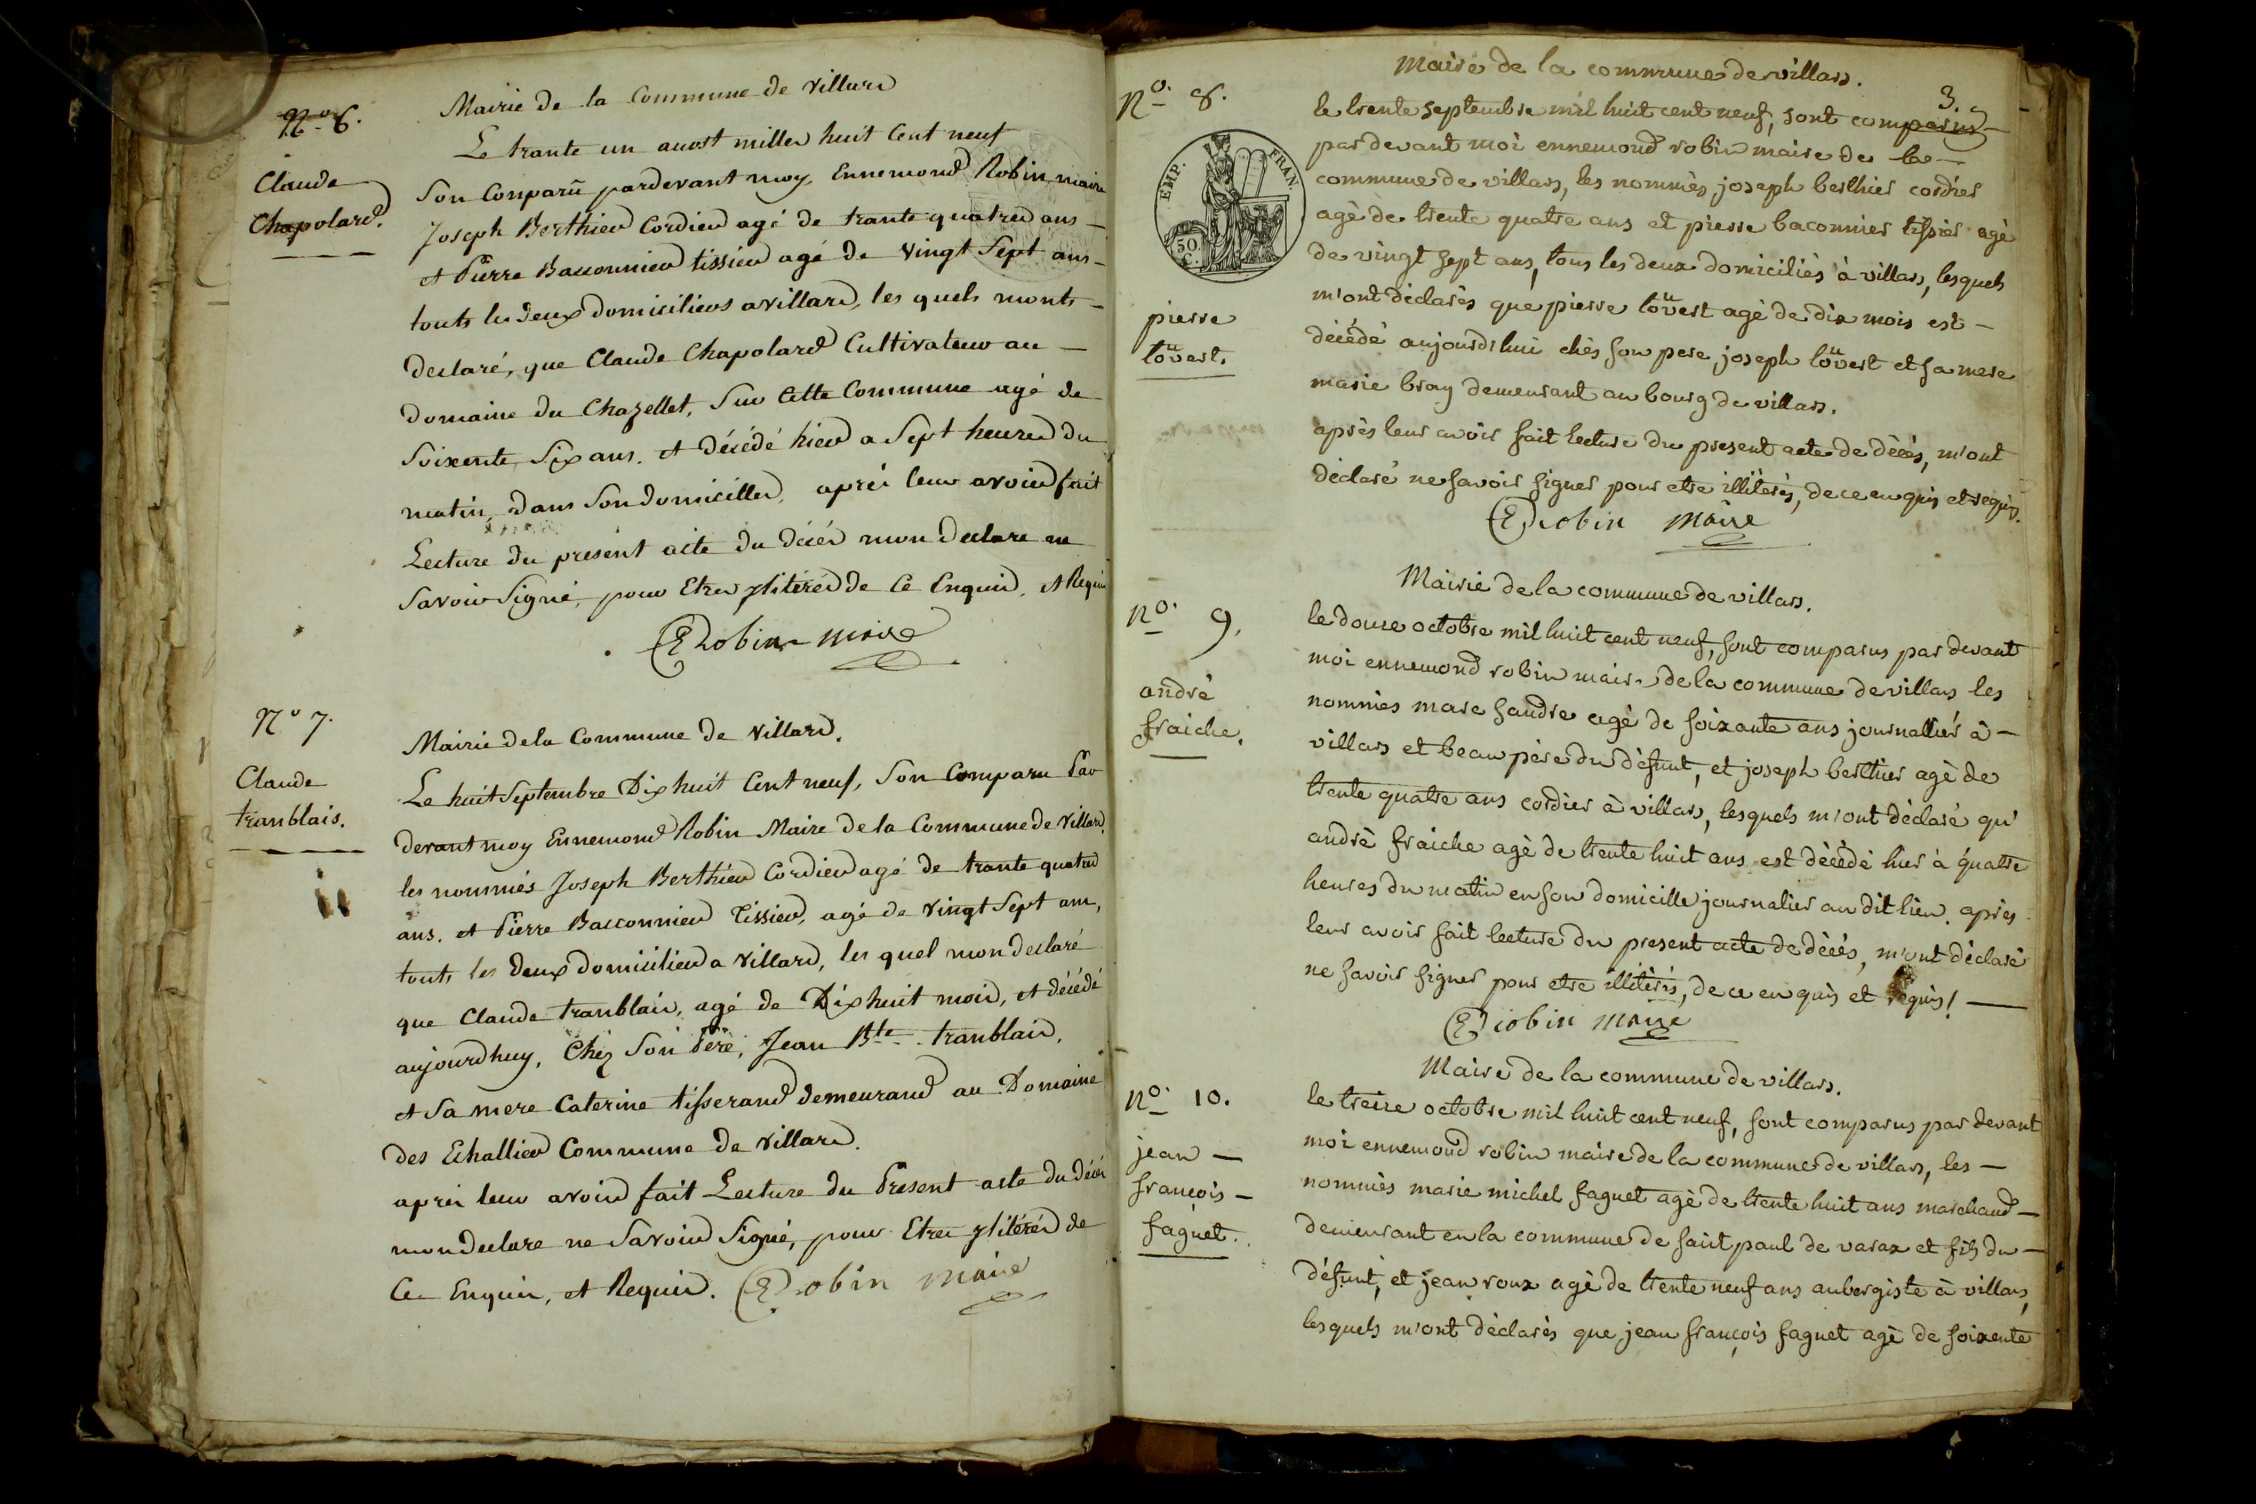 Mairie de la Commune de Villard
N.o 6.
Claude
Chapolard.
Le trante un auost miller huit Cent neuf
Son Conparü pardevant moy Ennemond Robin maire
Joseph Berthier Cordier agé de trante quatre ans —
et Pierre Bacconnier tissier agé de vingt Sept ans —
touts les deux domiciliers a villard, les quels monts —
declaré, que Claude Chapolard Cultivateur au —
domaine du Chazellet, Sur Cette Commune agé de
Soixente Six ans. et décédé hier a Sept heures du
matin, dans Son domiciller, aprés leur avoir fait
Lecture du présent acte du décés mon declare ne
Savoir Signé, pour Etre ylitérés de Ce Enquis, et Requis
E Robin maire
N.o 7.
Claude
tranblais.
Mairie de la Commune de Villard.
Le huit Septembre Dix huit Cent neuf, Son Comparu Par
devant moy Ennemond Robin Maire de la Commune de Villard.
les nommés Joseph Berthier Cordier agé de trante quatre
ans. et Pierre Bacconnier Tissier, agé de vingt Sept ans,
touts les deux domicilier a Villard, les quel mon declaré
que Claude tranblais, agé de Dix huit mois, et décédé
aujourdhuy, Chéz Son Pere, Jean Bte. tranblais,
et Sa mere Caterine tisserand demeurand au Domaine
des Echallier Commune de Villard.
aprés leur avoir fait Lecture du Présent acte du décés
mon declare ne Savoir Signé, pour Etre ylitérés de
Ce Enquis, et Requis. E Robin maire
3.
Mairie de la commune de villars.
no. 8.
EMP. FRAN.
50 C.
pierre
louvert.
le trente septembre mil huit cent neuf, sont comparus —
par devant moi ennemond robin maire de la —
commune de villars, les nommés joseph berthier cordier
agé de trente quatre ans et pierre baconnier tissier agé
de vingt sept ans, tous les deux domiciliés à villars, lesquels
m'ont déclarés que pierre louvert agé de dix mois est —
décédé aujourdhui chès son pere joseph louvert et sa mere
marie bray demeurant au bourg de villars.
après leur avoir fait lecture du present acte de décés, m'ont
déclaré ne savoir signer pour etre illitérés, de ce enquis et requis.
E robin maire
Mairie de la commune de villars.
no. 9.
andré
fraiche.
le douze octobre mil huit cent neuf, sont comparus par devant
moi ennemond robin maire de la commune de villars les
nommés marc fandre agé de soixante ans journallier à —
villars et beau père du défunt, et joseph berthier agé de
trente quatre ans cordier à villars, lesquels m'ont déclaré qu'
andré fraiche agé de trente huit ans est décédé hier à quatre
heures du matin en son domicille journalier au dit lieu. après
leur avoir fait lecture du present acte de décés, m'ont déclaré
ne savoir signer pour etre illitérés, de ce en quis et requis! —
E robin maire
Mairie de la commune de villars.
no. 10.
jean —
françois —
faguet.
le treize octobre mil huit cent neuf, sont comparus par devant
moi ennemond robin maire de la commune de villars, les —
nommés marie michel faguet agé de trente huit ans marchand —
demeurant en la commune de saint paul de varax et fils du —
défunt, et jean roux agé de trente neuf ans aubergiste à villars,
lesquels m'ont déclarés que jean françois faguet agé de soixente